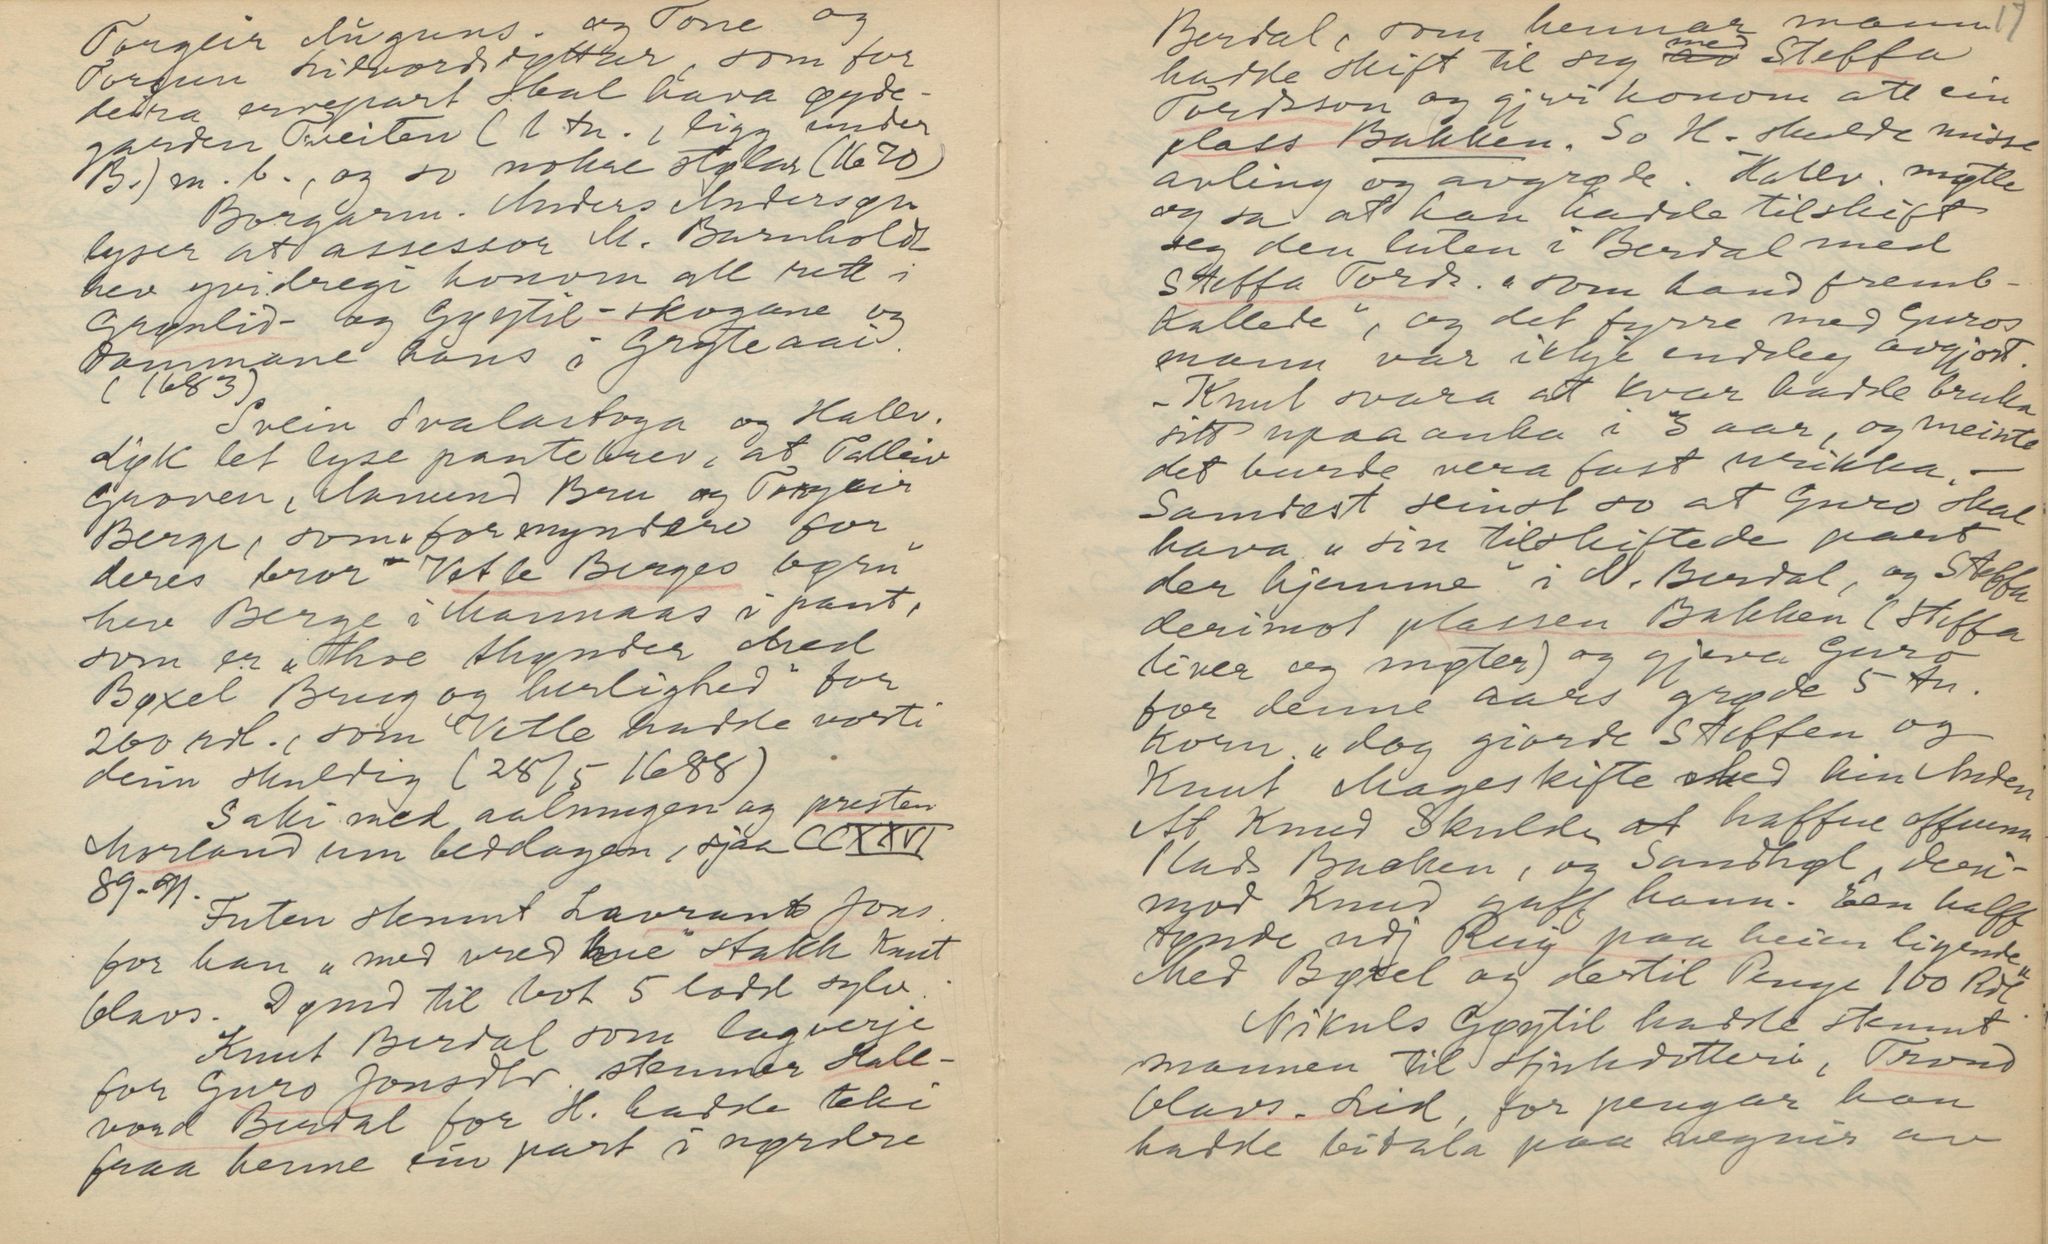 Torgeir Auguns. og Tone og
Torgun Sidvordsdøttar, som for
deira arvepart skal hava øyde-
garden Tveiten (1 tn., ligg under
B.) m. b., og so nokre stølar (1670)
Borgarm. Anders Andersøn
lyser at assessor M. Barnholdt
hev yvidregi honom all rett i
Grønlid- og Gøytil-skogane og
dammane hans i Grøteaai.
(1683)
Svein Svalastoga og Hallv.
Lyk let lyse pantebrev, at Talleiv
Groven, Aamund Bru og Torgeir
Berge, som „formyndere for
deres bror" Vetle Berges børn
hev Berge i Mannaas i pant,
som er „Thre thynder Med
Bøxel Brug og herlighed" for
260 rdl., som Vetle hadde vorti
deim skuldig (28/5 1688)
Saki med aalmugen og presten
Morland um beddagen, sjaa CCXXVI
89-91.
Futen stemnt Lavrants Jons.
for han „med vred hue" stakk Knut
Olavs. Dømd til bot 5 lodd sylv.
Knut Berdal som lagverje
for Guro Jonsdtr. stemner Hall-
vord Berdal for H. hadde teki
fraa henne ein part i nørdre
17
Berdal, som hennar mann
hadde skift til seg med Steffa
Tordsson og gjevi honom att ein
plass Bakken. So H. skulde misse
avling og avgrøde. Hallv. møtte
og sa at han hadde tilskift
seg den luten i Berdal med
Steffa Tords. „som hand fremb-
kallede", og det fyrre med Guros
mann var ikkje endeleg avgjort.
- Knut svara at kvar hadde bruka
sitt upaaanka i 3 aar, og meinte
det burde vera fast urikka. -
Samdest seinst so at Guro skal
hava „sin tilskiftede part
der hjemme" i N. Berdal, og Steffa
derimot plassen Bakken (Steffa
liver og møter) og gjeva Guro
for denne aars grøde 5 tn.
Korn. „dog giorde Steffen og
Knut Mageskifte Med hin Anden
At Knud Skulde at haffue offuenn
Plads Backen, og Sandhøl, deri-
mod Knud gaff hann. Een halff
tynde udj Ruij paa heien ligende
Med Bøxel og dertil Penge 100 Rdl"
Nikuls Gøytil hadde stemnt
mannen til stjukdotteri, Trond
Olavs. Lid, for pengar han
hadde bitala paa vegnir av